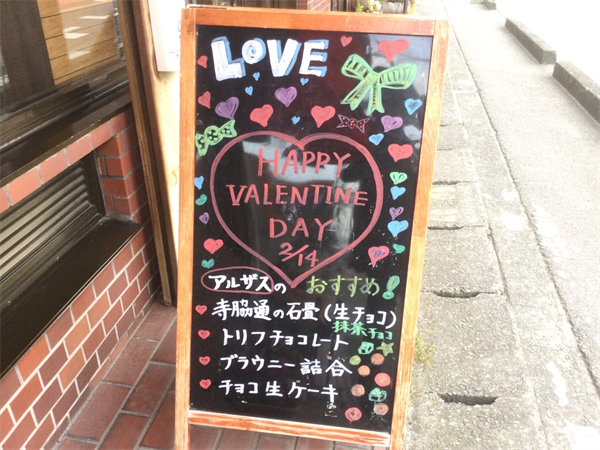 LOVE
HAPPY
VALENTINE
DAY
2/14
アルザスの おすすめ!
寺脇通の石畳(生チョコ)
抹茶チョコ
トリフチョコレート
ブラウニー詰合
チョコ生ケーキ